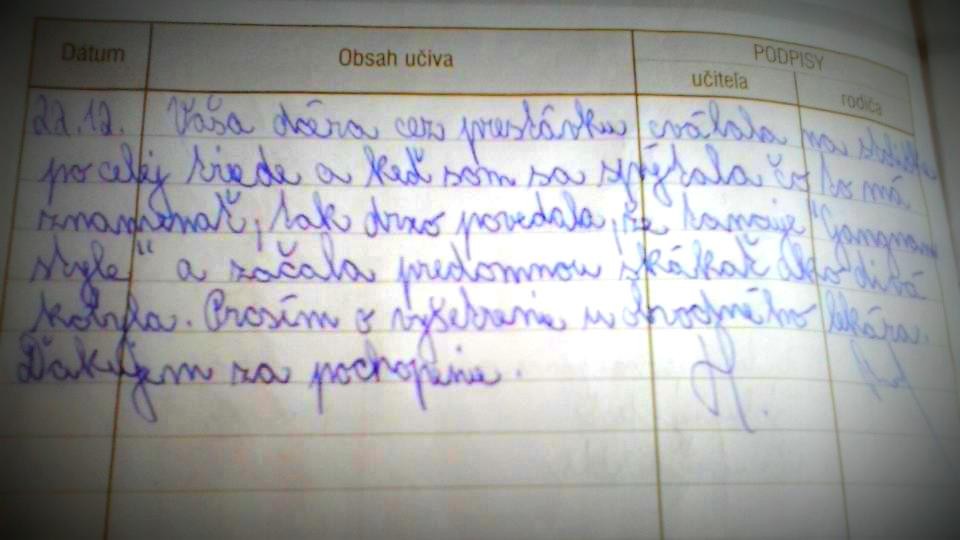 Dátum Obsah učiva PODPISY
učiteľa rodiča
22.12. Vaša dcéra cez prestávku cválala na
po celej triede a keď som sa spýtala čo to má
znamenať, tak drzo povedala, že tancuje "Gangnam
style" a začala predomnou skákať ako divá
kobyla. Prosím o vyšetrenie u obvodného lekára.
Ďakujem za pochopenie.